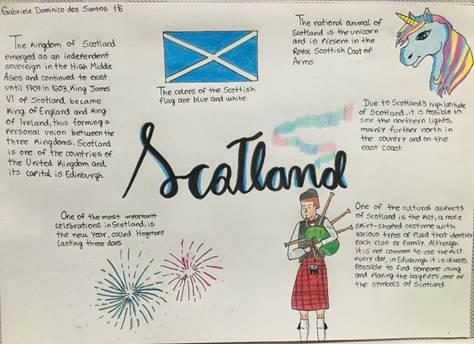 Gabriele Dominico dos Santos 1º6
The Kingdom of Scotland
emerged as an independent
sovereign in the High Middle
Ages and continued to exist
until 1707. In 1603, King James
VI of Scotland became
King of England and King
of Ireland, thus forming a
personal union between the
three Kingdoms. Scotland
is one of the countries of
the United Kingdom and
its capital is Edinburgh.
The colors of the Scottish
flag are blue and white.
The national animal of
Scotland is the unicorn
and is present in the
Royal Scottish Coat of
Arms.
Due to Scotland's high latitude
of Scotland, it is possible to
see the northern lights,
mainly further north in
the country and on the
east coast
Scotland
One of the most important
celebrations in Scotland, is
the new year, called Hogmany
lasting three days.
One of the cultural aspects
of Scotland is the Kilt, a male
skirt-shaped costume with
various types of plaid that identify
each clan or family. Although
it is not common to use the Kilt
every day, in Edinburgh it is always
possible to find someone using
and playing the bagpipes, one of
the symbols of Scotland.